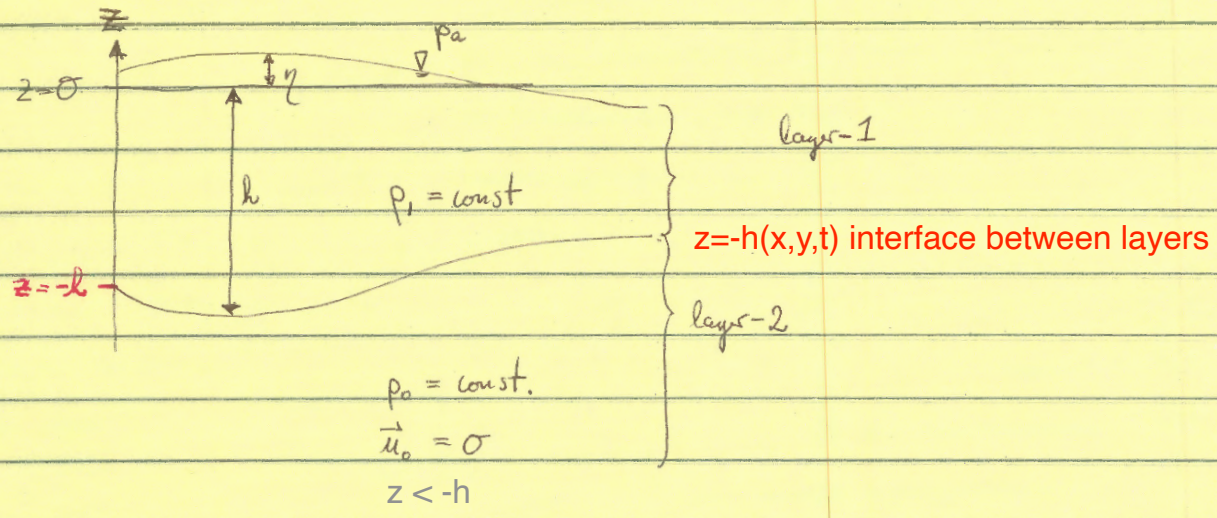 z
pa
z=0
η
layer-1
h
ρ₁ = const
z=-h(x,y,t) interface between layers
z=-h
layer-2
ρ₀ = const.
u⃗₀ = 0
z < -h